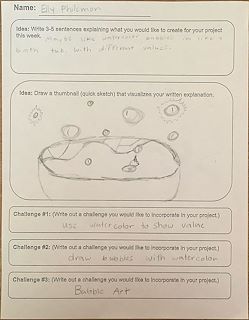 Name: Elly Philemon
Idea: Write 3-5 sentences explaining what you would like to create for your project
this week. Maybe like watercolor bubbles in like a
bath tub. With different values.
Idea: Draw a thumbnail (quick sketch) that visualizes your written explanation.
Challenge #1: (Write out a challenge you would like to incorporate in your project.)
Use watercolor to show value
Challenge #2: (Write out a challenge you would like to incorporate in your project.)
draw bubbles with watercolor
Challenge #3: (Write out a challenge you would like to incorporate in your project.)
Bubble Art